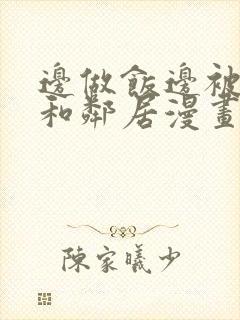 邊做飯邊被
和鄰居漫畫
陳家曦少